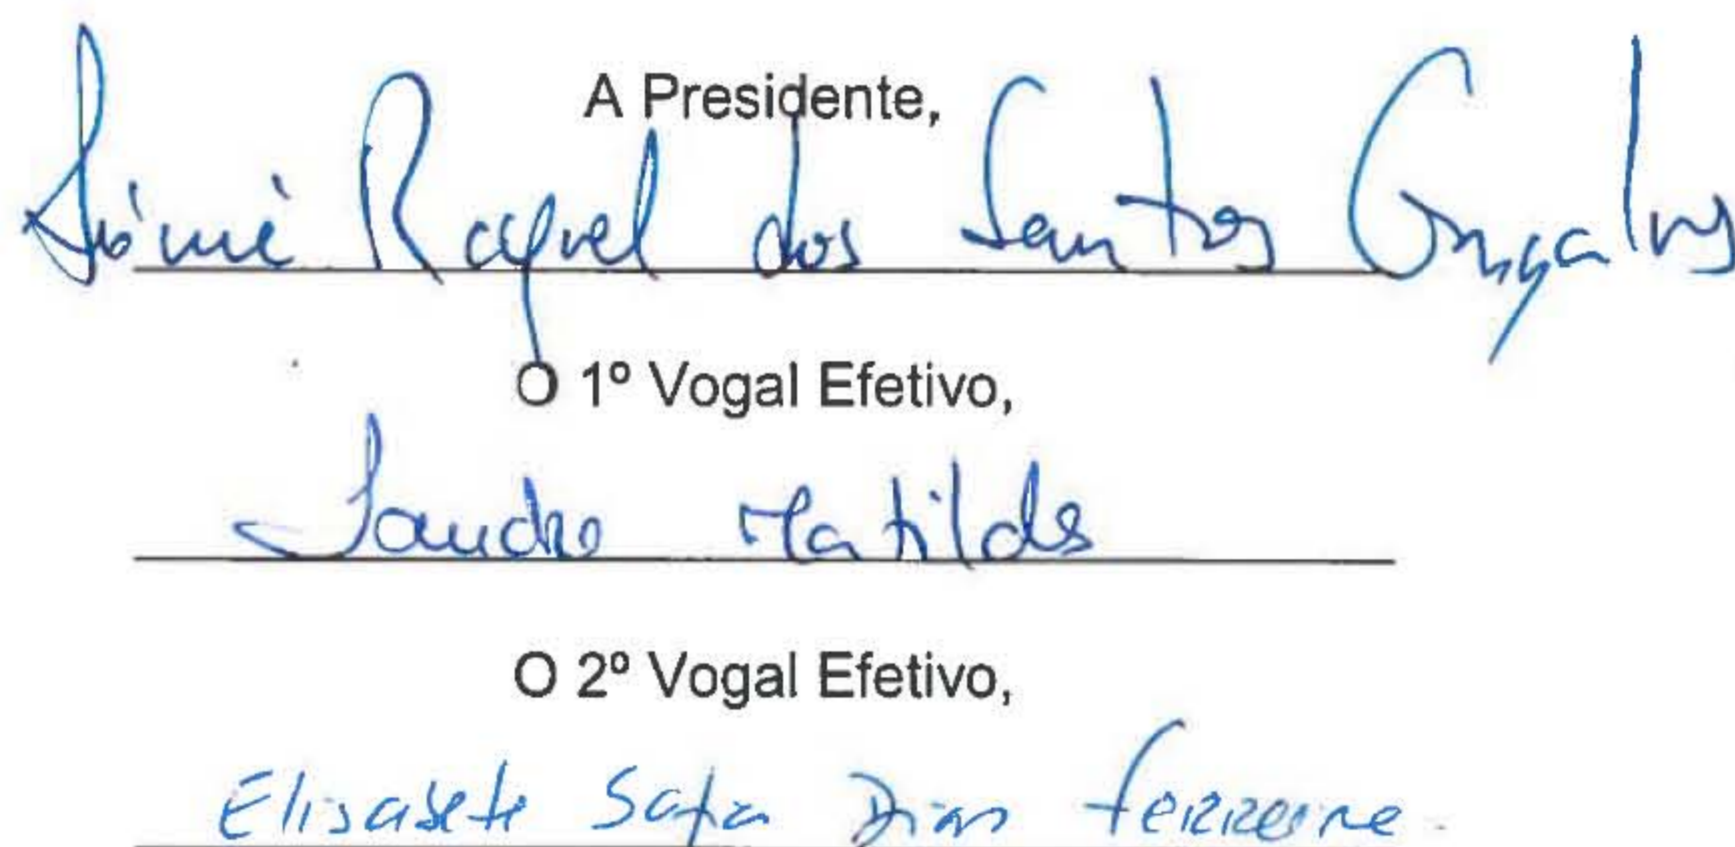 A Presidente,
Sónia Raquel dos Santos Gonçalves
O 1º Vogal Efetivo,
Sandra Matilde
O 2º Vogal Efetivo,
Elisabete Sofia Dias Ferreira